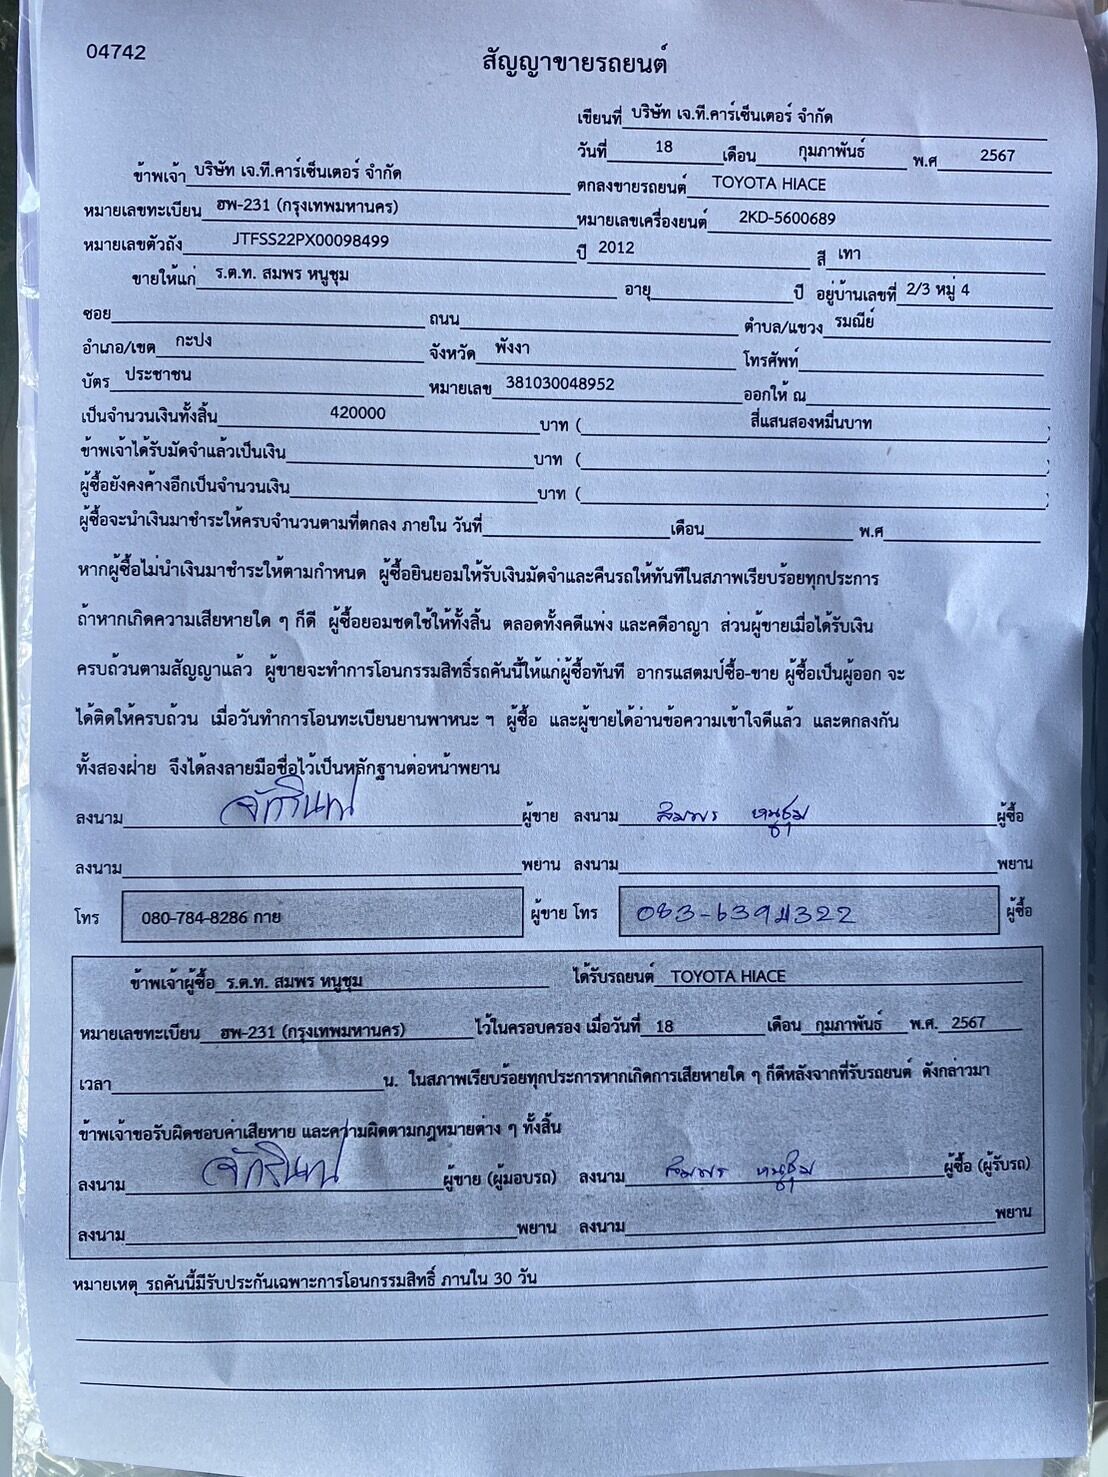 04742
สัญญาขายรถยนต์
เขียนที่ บริษัท เจ.ที.คาร์เซ็นเตอร์ จำกัด
วันที่ 18 เดือน กุมภาพันธ์ พ.ศ 2567
ข้าพเจ้า บริษัท เจ.ที.คาร์เซ็นเตอร์ จำกัด ตกลงขายรถยนต์ TOYOTA HIACE
หมายเลขทะเบียน ฮพ-231 (กรุงเทพมหานคร) หมายเลขเครื่องยนต์ 2KD-5600689
หมายเลขตัวถัง JTFSS22PX00098499 ปี 2012 สี เทา
ขายให้แก่ ร.ต.ท. สมพร หนูชุม อายุ ปี อยู่บ้านเลขที่ 2/3 หมู่ 4
ซอย ถนน ตำบล/แขวง รมณีย์
อำเภอ/เขต กะปง จังหวัด พังงา โทรศัพท์
บัตร ประชาชน หมายเลข 381030048952 ออกให้ ณ
เป็นจำนวนเงินทั้งสิ้น 420000 บาท ( สี่แสนสองหมื่นบาท )
ข้าพเจ้าได้รับมัดจำแล้วเป็นเงิน บาท ( )
ผู้ซื้อยังคงค้างอีกเป็นจำนวนเงิน บาท ( )
ผู้ซื้อจะนำเงินมาชำระให้ครบจำนวนตามที่ตกลง ภายใน วันที่ เดือน พ.ศ
หากผู้ซื้อไม่นำเงินมาชำระให้ตามกำหนด ผู้ซื้อยินยอมให้รับเงินมัดจำและคืนรถให้ทันทีในสภาพเรียบร้อยทุกประการ
ถ้าหากเกิดความเสียหายใด ๆ ก็ดี ผู้ซื้อยอมชดใช้ให้ทั้งสิ้น ตลอดทั้งคดีแพ่ง และคดีอาญา ส่วนผู้ขายเมื่อได้รับเงิน
ครบถ้วนตามสัญญาแล้ว ผู้ขายจะทำการโอนกรรมสิทธิ์รถคันนี้ให้แก่ผู้ซื้อทันที อากรแสตมป์ซื้อ-ขาย ผู้ซื้อเป็นผู้ออก จะ
ได้ติดให้ครบถ้วน เมื่อวันทำการโอนทะเบียนยานพาหนะ ฯ ผู้ซื้อ และผู้ขายได้อ่านข้อความเข้าใจดีแล้ว และตกลงกัน
ทั้งสองฝ่าย จึงได้ลงลายมือชื่อไว้เป็นหลักฐานต่อหน้าพยาน
ลงนาม ผู้ขาย ลงนาม สมพร หนูชุม ผู้ซื้อ
ลงนาม พยาน ลงนาม พยาน
โทร 080-784-8286 กาย ผู้ขาย โทร ผู้ซื้อ
ข้าพเจ้าผู้ซื้อ ร.ต.ท. สมพร หนูชุม ได้รับรถยนต์ TOYOTA HIACE
หมายเลขทะเบียน ฮพ-231 (กรุงเทพมหานคร) ไว้ในครอบครอง เมื่อวันที่ 18 เดือน กุมภาพันธ์ พ.ศ. 2567
เวลา น. ในสภาพเรียบร้อยทุกประการหากเกิดการเสียหายใด ๆ ก็ดีหลังจากที่รับรถยนต์ ดังกล่าวมา
ข้าพเจ้าขอรับผิดชอบค่าเสียหาย และความผิดตามกฎหมายต่าง ๆ ทั้งสิ้น
ลงนาม ผู้ขาย (ผู้มอบรถ) ลงนาม สมพร หนูชุม ผู้ซื้อ (ผู้รับรถ)
ลงนาม พยาน ลงนาม พยาน
หมายเหตุ รถคันนี้มีรับประกันเฉพาะการโอนกรรมสิทธิ์ ภานใน 30 วัน